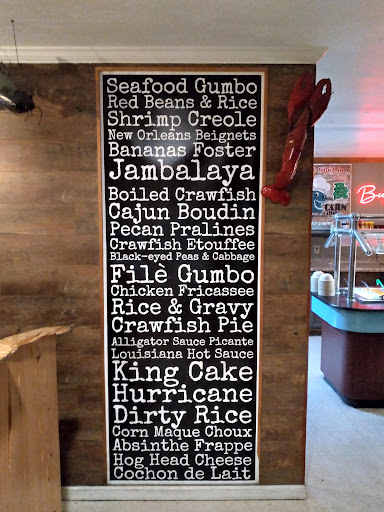 Seafood Gumbo
Red Beans & Rice
Shrimp Creole
New Orleans Beignets
Bananas Foster
Jambalaya
Boiled Crawfish
Cajun Boudin
Pecan Pralines
Crawfish Etouffee
Black-eyed Peas & Cabbage
Filè Gumbo
Chicken Fricassee
Rice & Gravy
Crawfish Pie
Alligator Sauce Picante
Louisiana Hot Sauce
King Cake
Hurricane
Dirty Rice
Corn Maque Choux
Absinthe Frappe
Hog Head Cheese
Cochon de Lait